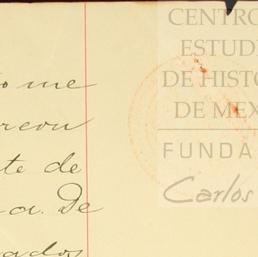 CENTRO
ESTUDI
DE HISTO
DE MEX
FUNDA
Carlos
me
te de
a. De
ados